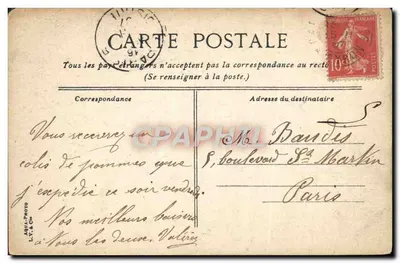 CARTE POSTALE
Tous les pays étrangers n'acceptent pas la correspondance au recto
(Se renseigner à la poste.)
Correspondance
Adresse du destinataire
Vous recevrez un
colis de pommes que
j'expédie ce soir vendredi
Nos meilleurs baisers
à vous les deux. Valérie
M. Baudis
5, boulevard St Martin
Paris
CPAPHIL
AQUA-PHOTO
L.V. & Cie
10